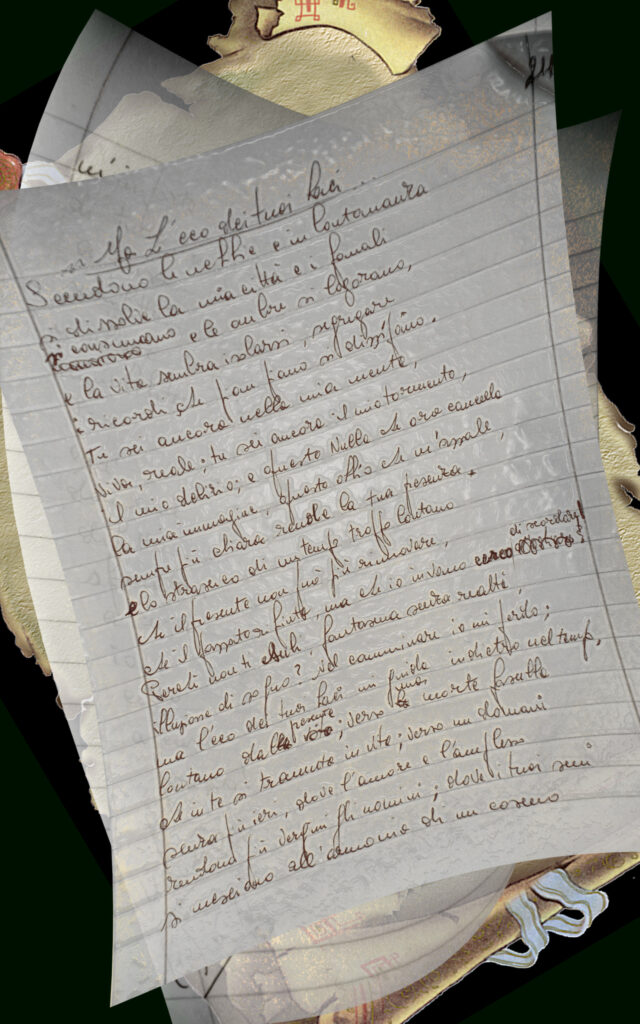 Ma L'eco dei tuoi baci ...
Scendono le nebbie e in lontananza
si dissolve la mia città e i fanali
si consumano e le ombre si logorano,
e la vita sembra isolarsi, segregare
i ricordi che pian piano si dissipano.
Tu sei ancora nella mia mente,
viva, reale; tu sei ancora il mio tormento,
il mio delirio; e questo Nulla che ora cancella
la mia immagine, questo oblio che m'assale,
sempre più chiara rende la tua presenza.
e lo strascico di un tempo troppo lontano
che il presente non può più rinnovare,
che il passato rifiuta, ma che io invano cerco di scordare!
Perché non ti esuli, fantasma senza realtà,
illusione di sogno? Nel camminare io mi perdo;
ma l'eco dei tuoi baci mi guida indietro nel tempo,
lontano dalla presente vita; verso una morte fasulla
che in te si tramuta in vita; verso un domani
senza più ieri, dove l'amore e l'amplesso
rendono più vergini gli uomini; dove i tuoi seni
si mescolano all'armonia di un coseno